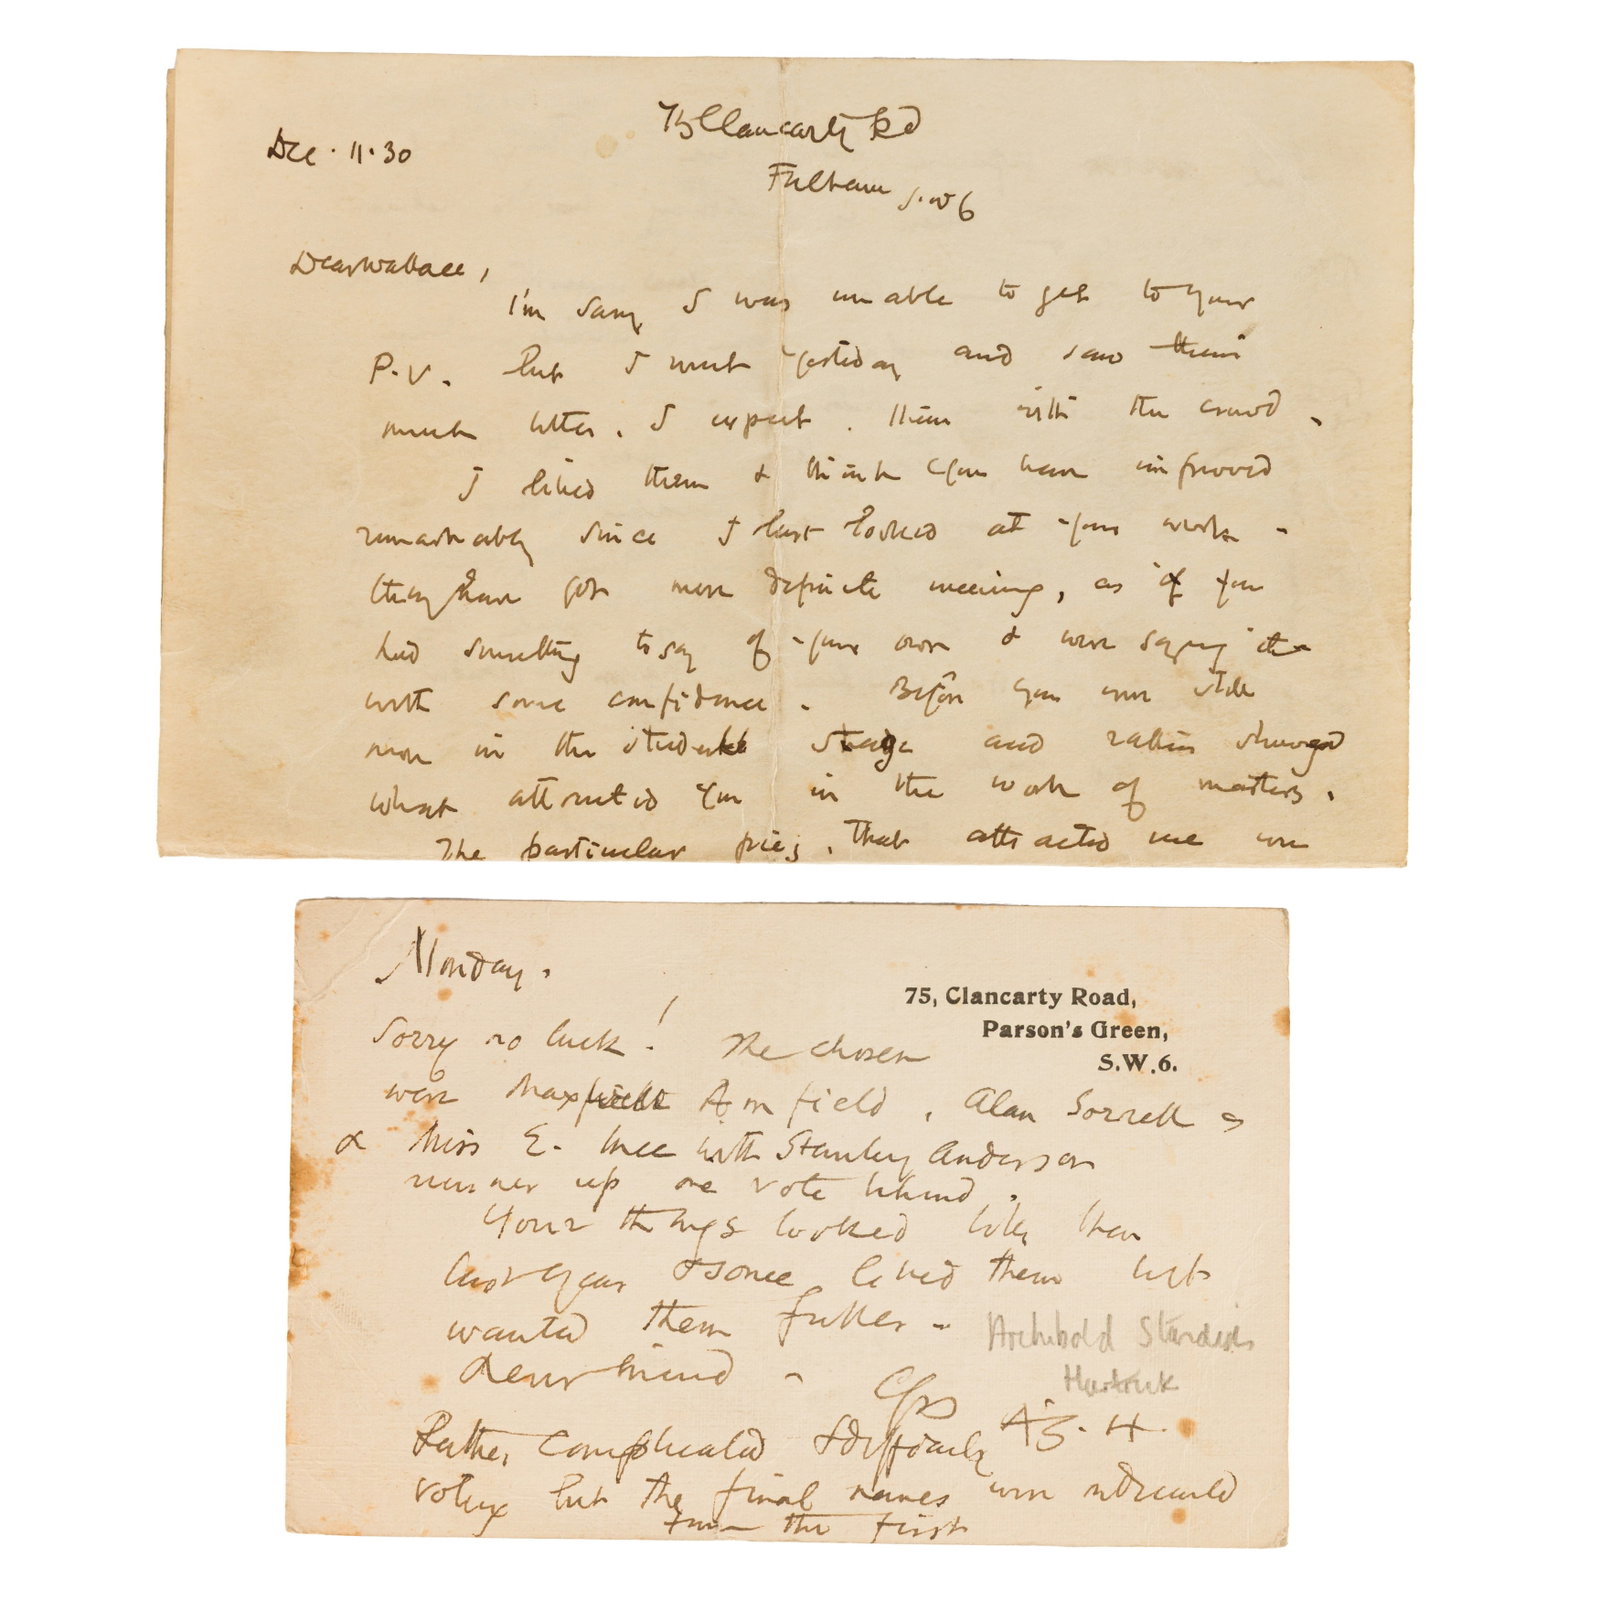 Dec. 11. 30
75 Clancarty Rd
Fulham S.W 6
Dear Wallace,
I'm sorry I was unable to get to your
P.V. but I went yesterday and saw them
much better, I expect, then with the crowd.
I liked them & think you have improved
remarkably since I last looked at your work -
they have got more definite meaning, as if you
had something to say of your own & were saying it
with some confidence. Before you were still
more in the student stage and rather showed
what attracted you in the work of masters.
The particular pieces that attracted me were
Monday.
75, Clancarty Road,
Parson's Green,
S.W.6.
Sorry no luck! The chosen
were Maxwell Armfield, Alan Sorrell
& Miss E. with Stanley Anderson
runner up one vote behind.
Your things looked better than
last year & some liked them but
wanted them fuller -
Archibold Standish
Hartrick
Yrs
A.S.H.
Rather complicated & difficult
voting but the final names were
from the first